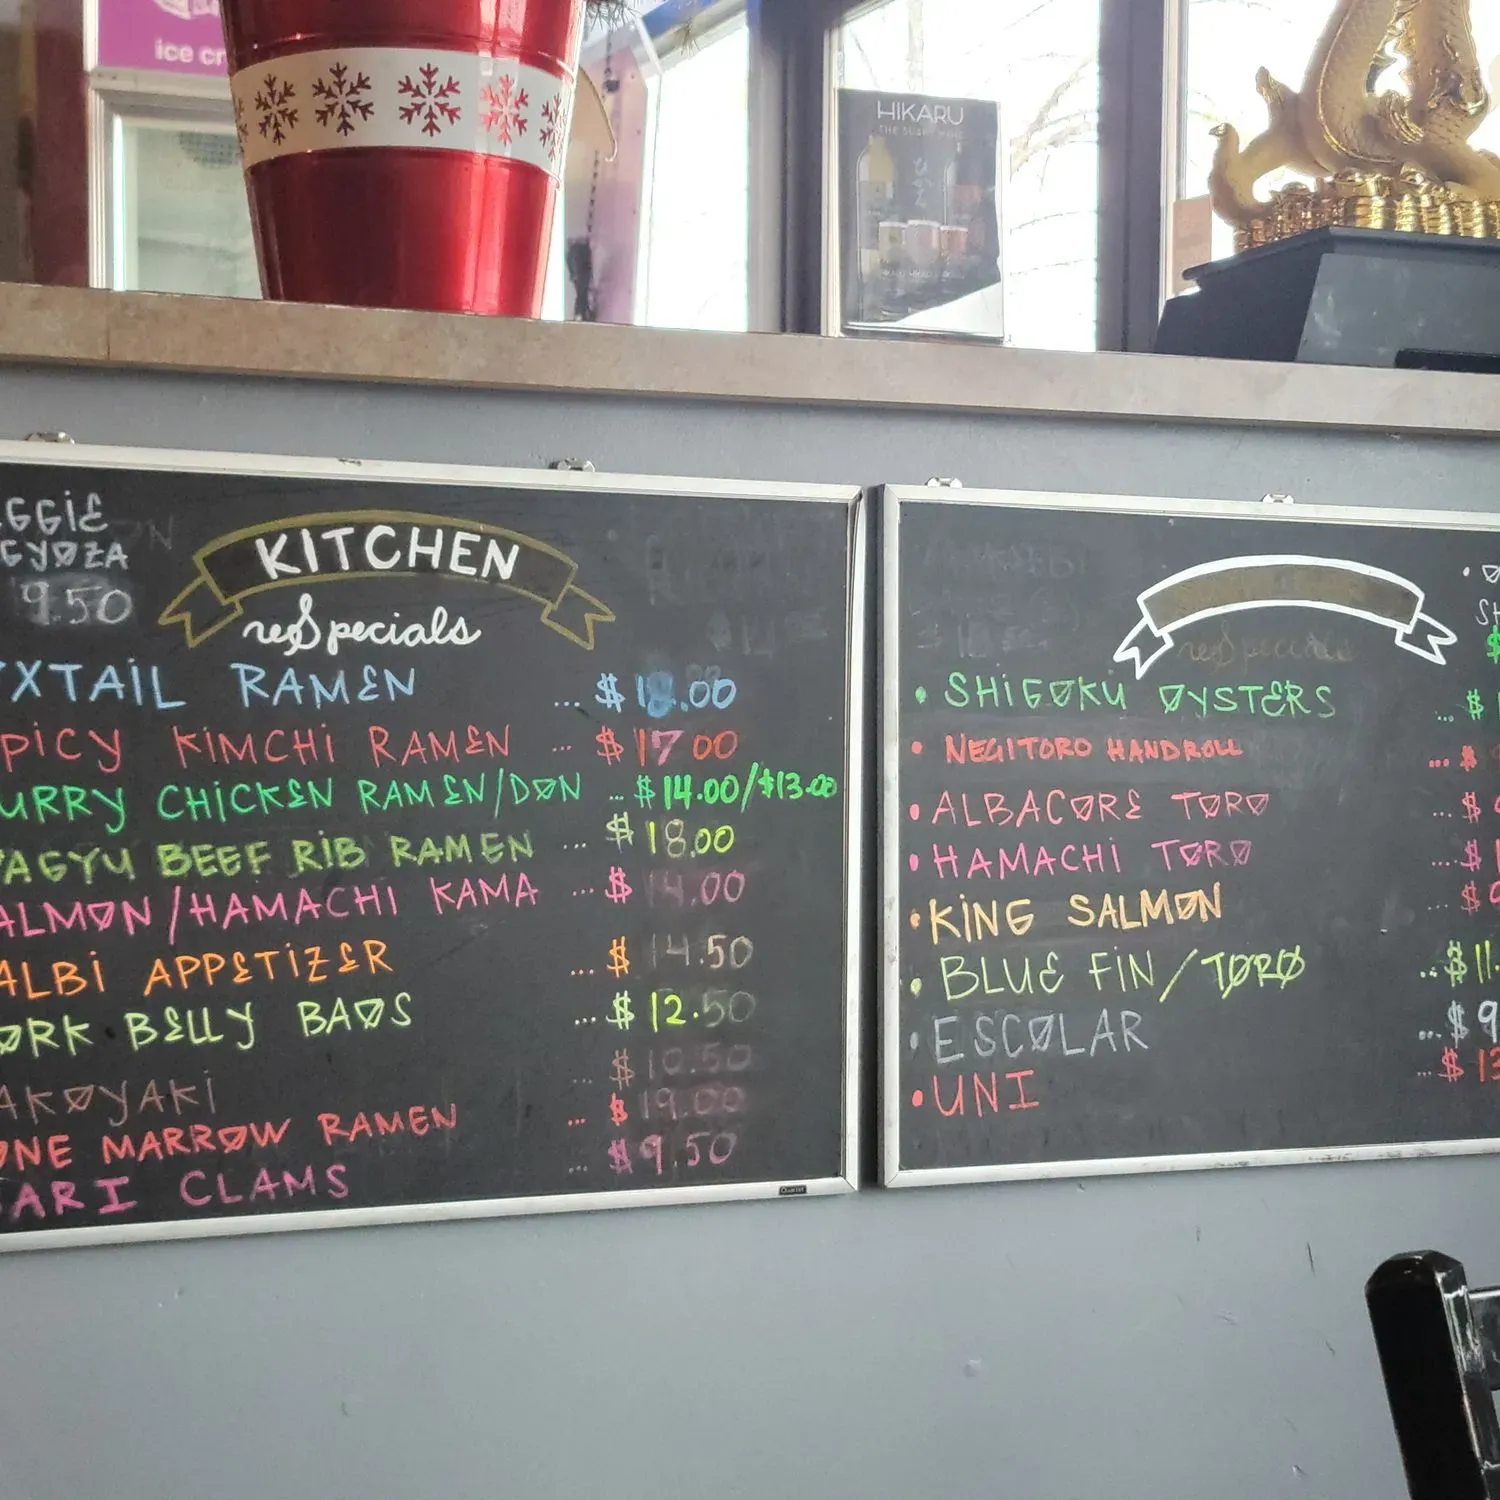 ice cr
HIKARU
GGIE
GYOZA
9.50
KITCHEN
Specials
XTAIL RAMEN ... $18.00
PICY KIMCHI RAMEN ... $17.00
URRY CHICKEN RAMEN/DON ... $14.00/$13.00
AGYU BEEF RIB RAMEN ... $18.00
ALMON/HAMACHI KAMA ... $14.00
ALBI APPETIZER ... $14.50
ORK BELLY BAOS ... $12.50
AKOYAKI ... $10.50
ONE MARROW RAMEN ... $19.00
ARI CLAMS ... $9.50
Quartet
• SHIGOKU OYSTERS ... $
• NEGITORO HANDROLL ... $
• ALBACORE TORO ... $
• HAMACHI TORO ... $
• KING SALMON ... $
• BLUE FIN/TORO ... $11.
• ESCOLAR ... $9
• UNI ... $13